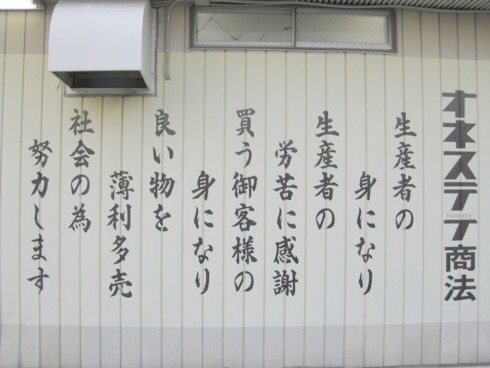 オネステテ商法
honesty
生産者の
身になり
生産者の
労苦に感謝
買う御客様の
身になり
良い物を
薄利多売
社会の為
努力します